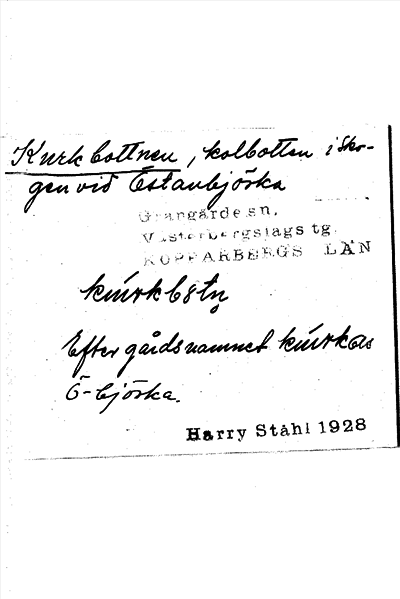 Kurkbottnen, kolbotten i sko-
gen vid Östanbjörka
Grangärde sn.
Västerbergslags tg.
KOPPARBERGS LÄN
Efter gårdsnamnet
Ö-björka.
Harry Ståhl 1928